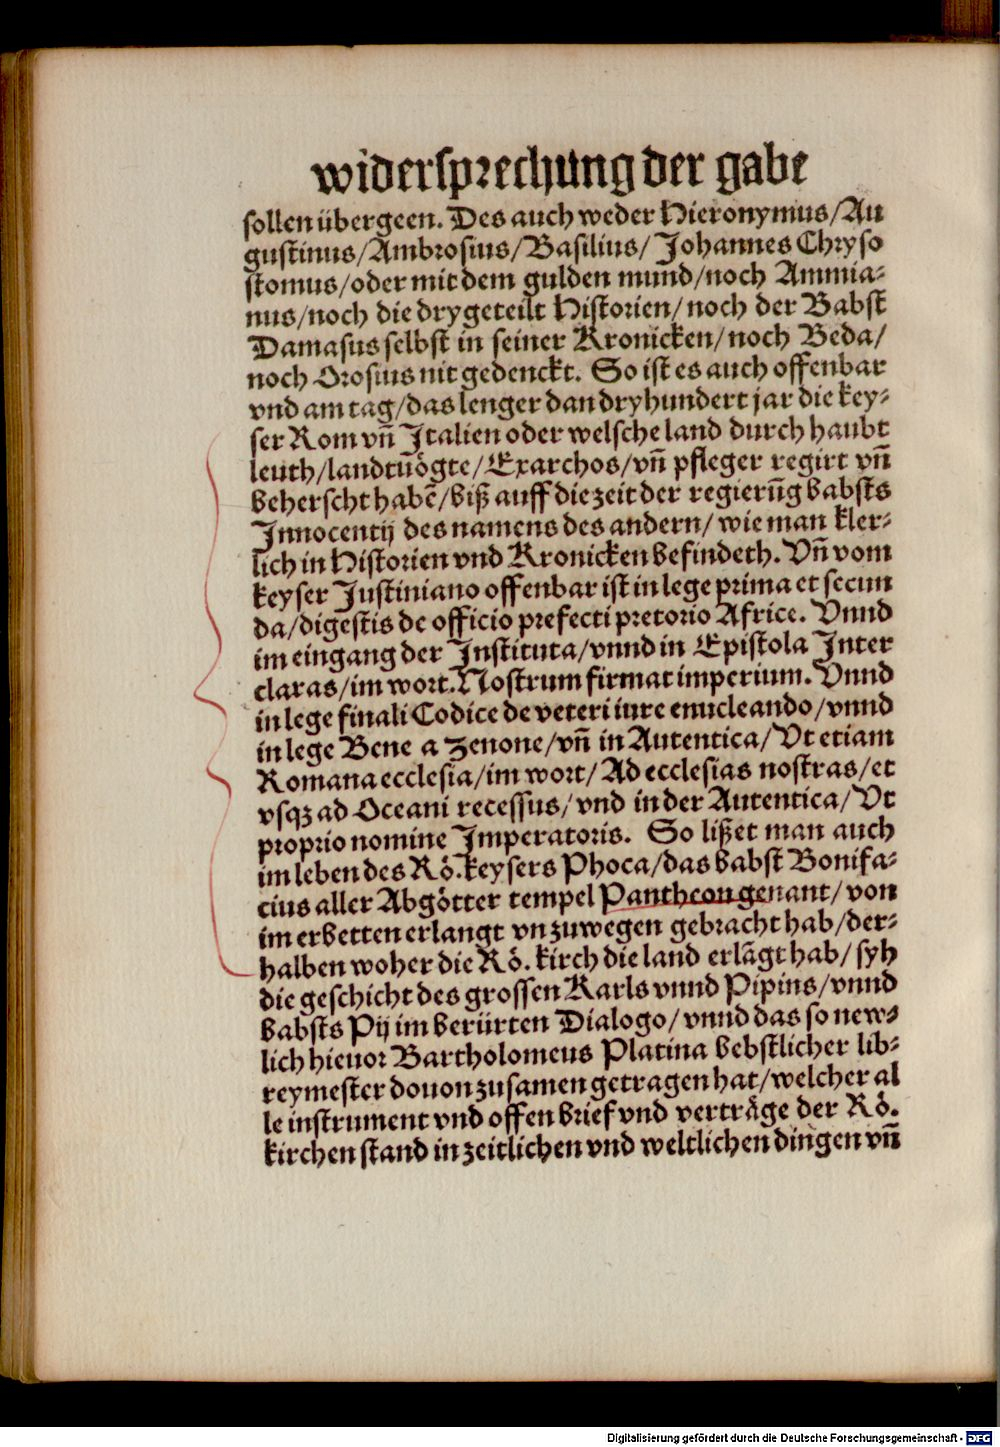 widersprechung der gabe
sollen übergeen. Des auch weder Hieronymus/Au
gustinus/Ambrosius/Basilius/Johannes Chryso
stomus/oder mit dem gulden mund/noch Ammia⸗
nus/noch die drygeteilt Historien/noch der Babst
Damasus selbst in seiner Kronicken/noch Beda/
noch Orosius nit gedenckt. So ist es auch offenbar
vnd am tag/das lenger dan dryhundert jar die key⸗
ser Rom vñ Italien oder welsche land durch haubt
leuth/landtuögte/Exarchos/vñ pfleger regirt vñ
beherscht habē/biß auff die zeit der regierūg babsts
Innocentij des namens des andern/wie man kler⸗
lich in Historien vnd Kronicken befindeth. Vñ vom
keyser Justiniano offenbar ist in lege prima et secun
da/digestis de officio prefecti pretorio Africe. Vnnd
im eingang der Instituta/vnnd in Epistola Inter
claras/im wort. Nostrum firmat imperium. Vnnd
in lege finali Codice de veteri iure enucleando/vnnd
in lege Bene a Zenone/vñ in Autentica/Vt etiam
Romana ecclesia/im wort/Ad ecclesias nostras/et
vsqꝫ ad Oceani recessus/vnd in der Autentica/Vt
proprio nomine Imperatoris. So lißet man auch
im leben des Rö. keysers Phoca/das babst Bonifa⸗
cius aller Abgötter tempel Pantheon genant/von
im erbetten erlangt vn zuwegen gebracht hab/der⸗
halben woher die Rö. kirch die land erlāgt hab/syh
die geschicht des grossen Karls vnnd Pipins/vnnd
babsts Pij im berürten Dialogo/vnnd das so new⸗
lich hieuor Bartholomeus Platina bebstlicher lib⸗
reymester douon zusamen getragen hat/welcher al
le instrument vnd offen brief vnd verträge der Rö.
kirchen stand in zeitlichen vnd weltlichen dingen vñ
Digitalisierung gefördert durch die Deutsche Forschungsgemeinschaft - DFG